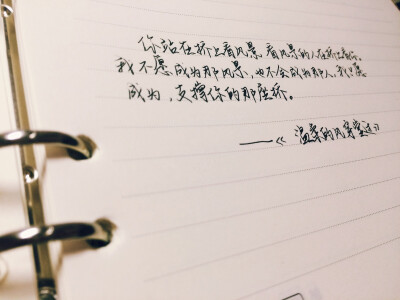 你站在桥上看风景，看风景的人在桥上看你。
我不愿成为那风景，也不会成为那人，我只愿
成为，支撑你的那座桥。
——《温柔的风穿堂过》